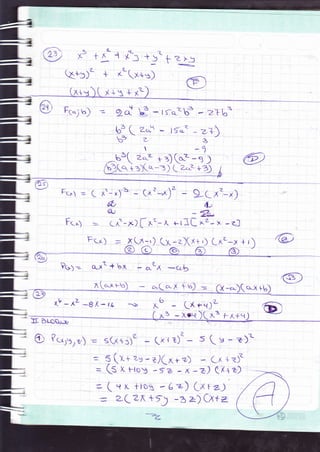 23 x³ + x² + x²y + y² + 2xy
(x+y)² + x²(x+y)
(x+y)(x+y+x²)
24 F(a;b) = 2a⁴b³ - 15a²b³ - 27b³
b³(2a⁴ - 15a² - 27)
b³ 2 3
1 -9
b³(2a² + 3)(a² - 9) D
b³(a+3)(a-3)(2a²+3)
25 F(x) = (x²-x)³ - (x²-x)² - 2(x²-x)
F(x) = (x²-x)[x²-x+1][x²-x-2]
F(x) = x(x-1)(x-2)(x+1)(x²-x+1)
26 P(x) = ax² + bx - a²x - ab
x(ax+b) - a(ax+b) = (x-a)(ax+b)
x⁶ - x² - 8x - 16 → x⁶ - (x+4)² D
(x³ - x-4)(x³+x+4)
II BLOQUE
1 P(x,y,z) = 5(x+y)² - (x+z)² - 5(y-z)²
= 5(x+2y-z)(x+z) - (x+z)²
= (5x+10y-5z-x-z)(x+z)
= (4x+10y-6z)(x+z)
= 2(2x+5y-3z)(x+z
A